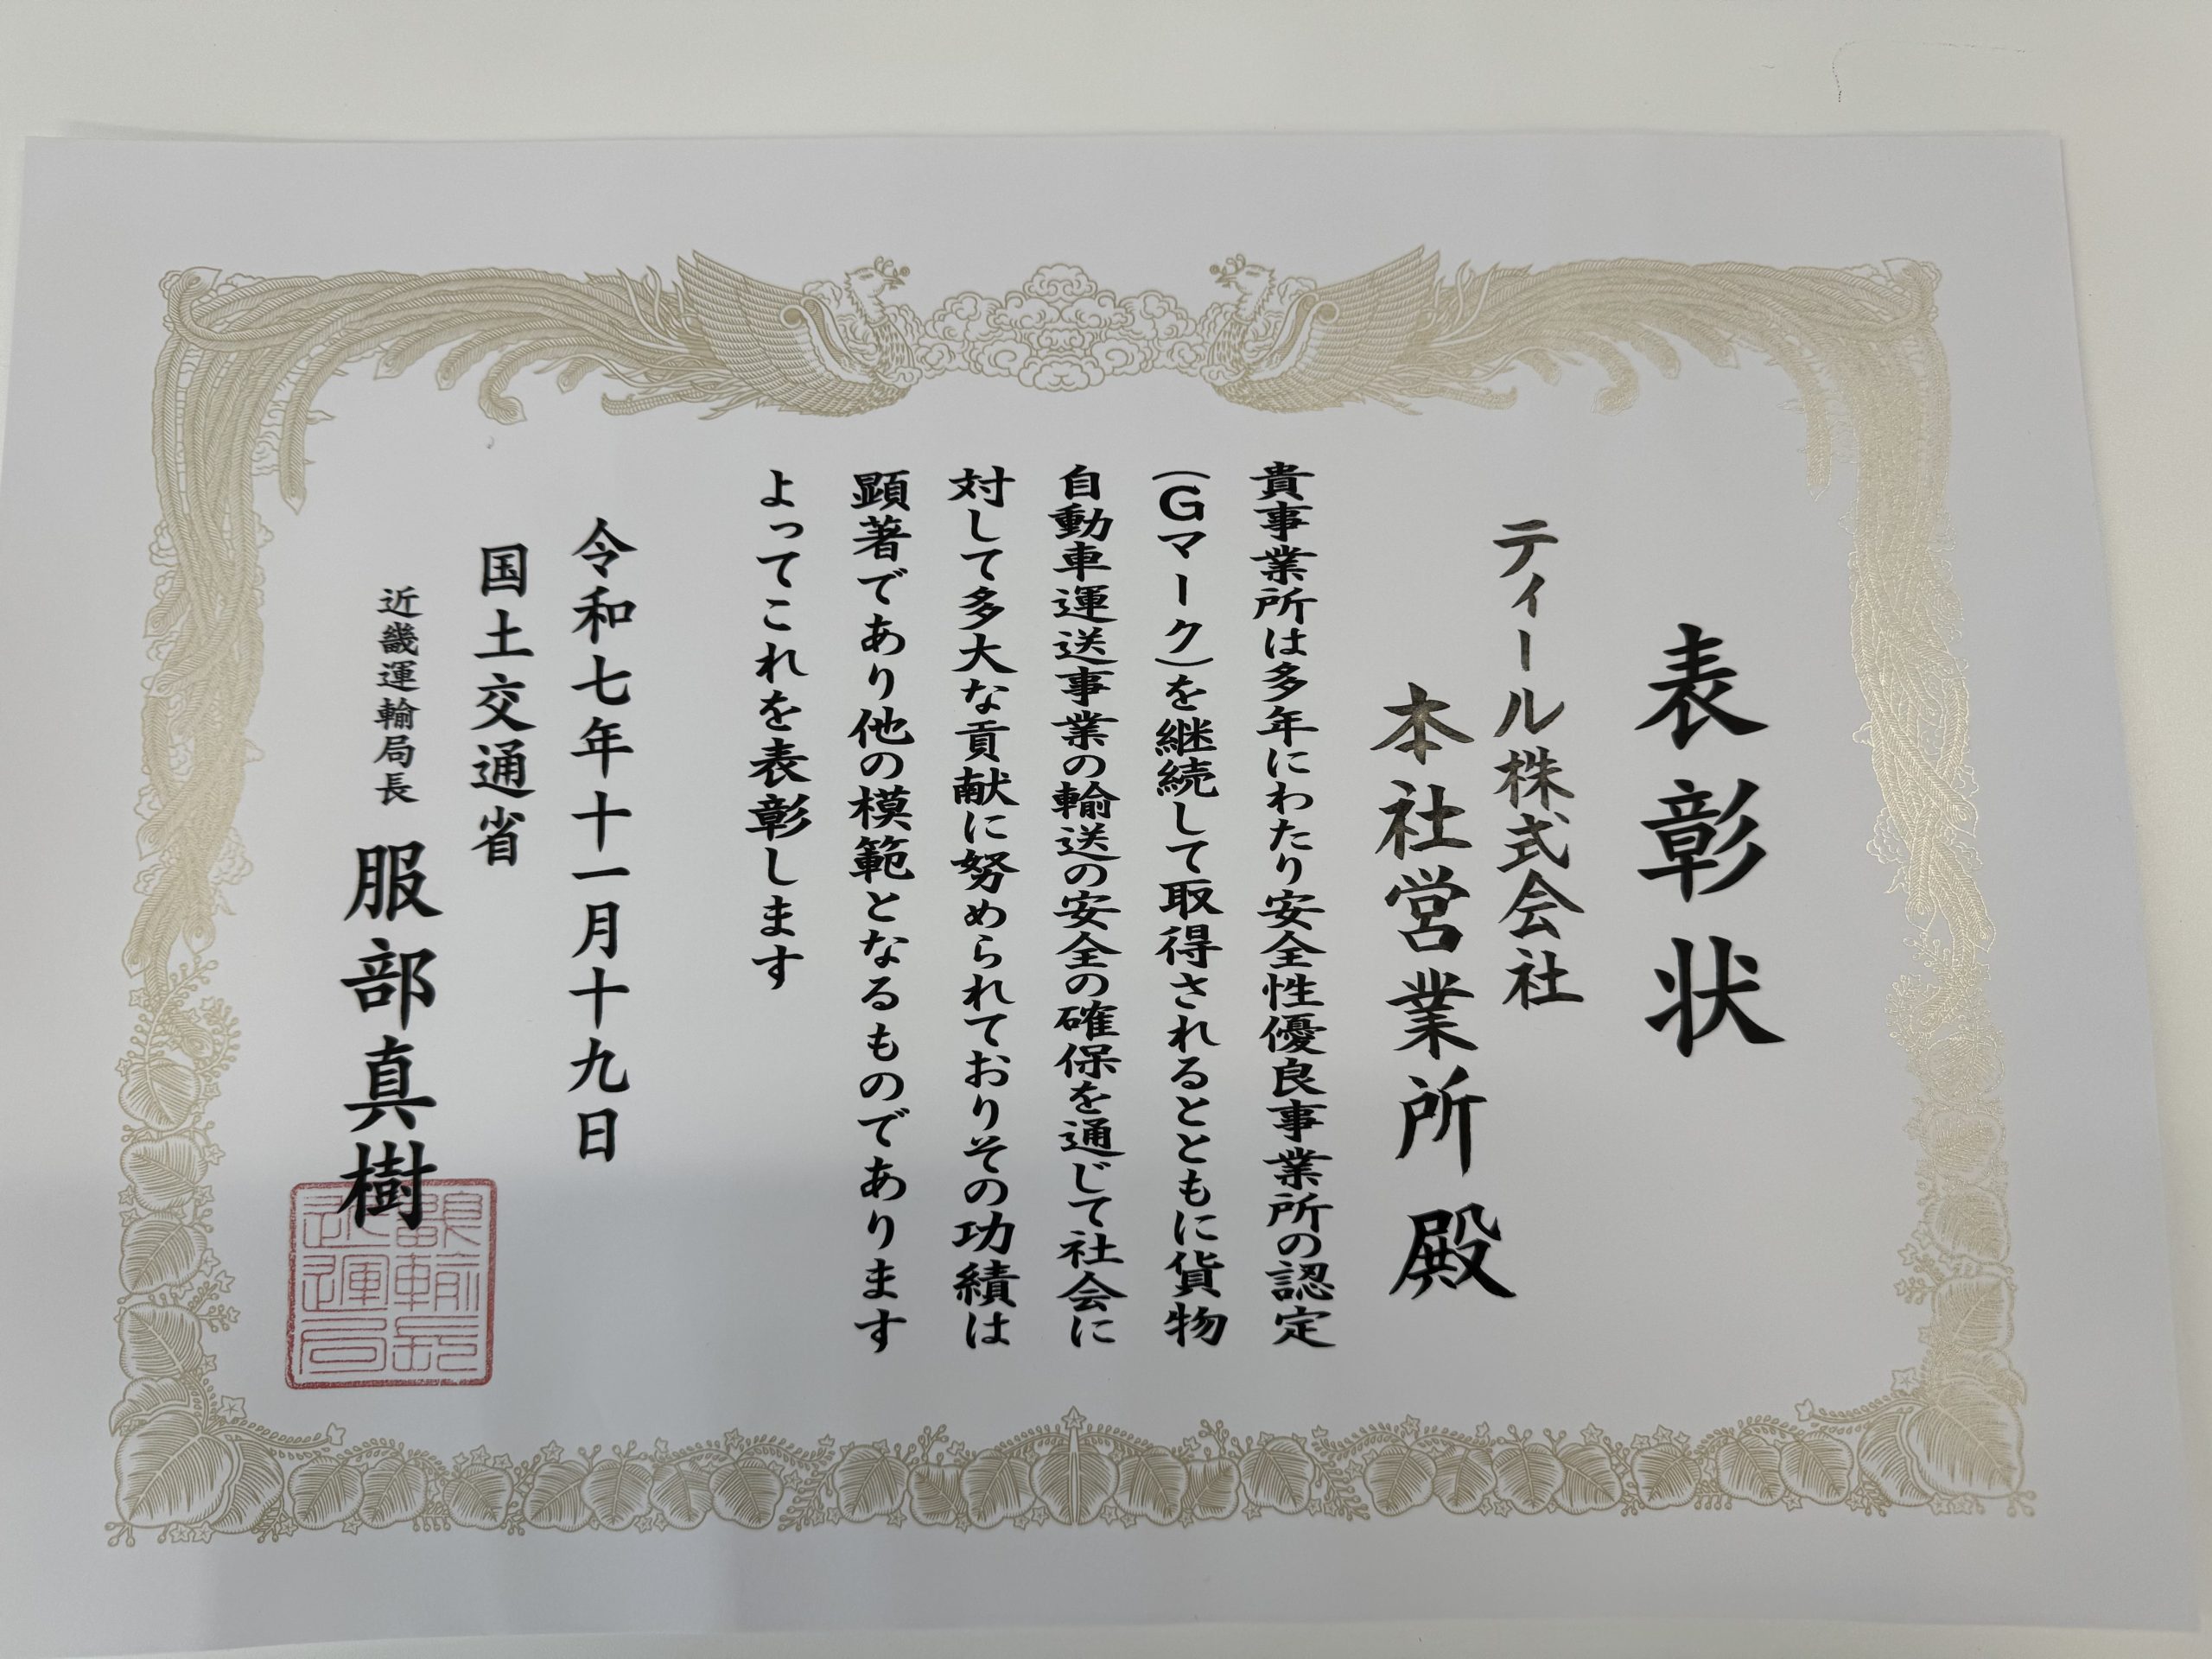 表彰状
ティール株式会社
本社営業所殿
貴事業所は多年にわたり安全性優良事業所の認定
(Gマーク)を継続して取得されるとともに貨物
自動車運送事業の輸送の安全の確保を通じて社会に
対して多大な貢献に努められておりその功績は
顕著であり他の模範となるものであります
よってこれを表彰します
令和七年十一月十九日
国土交通省
近畿運輸局長 服部真樹
近畿運輸局長